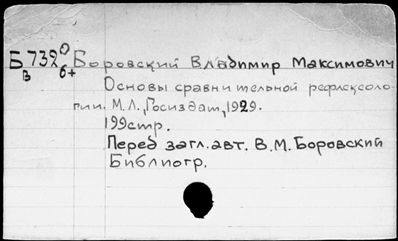 Б 7320 Боровский Владимир Максимович
в 6+
Основы сравнительной рефлексоло-
гии. М.Л., Госиздат, 1929.
199стр.
Перед загл. авт. В.М. Боровский
Библиогр.